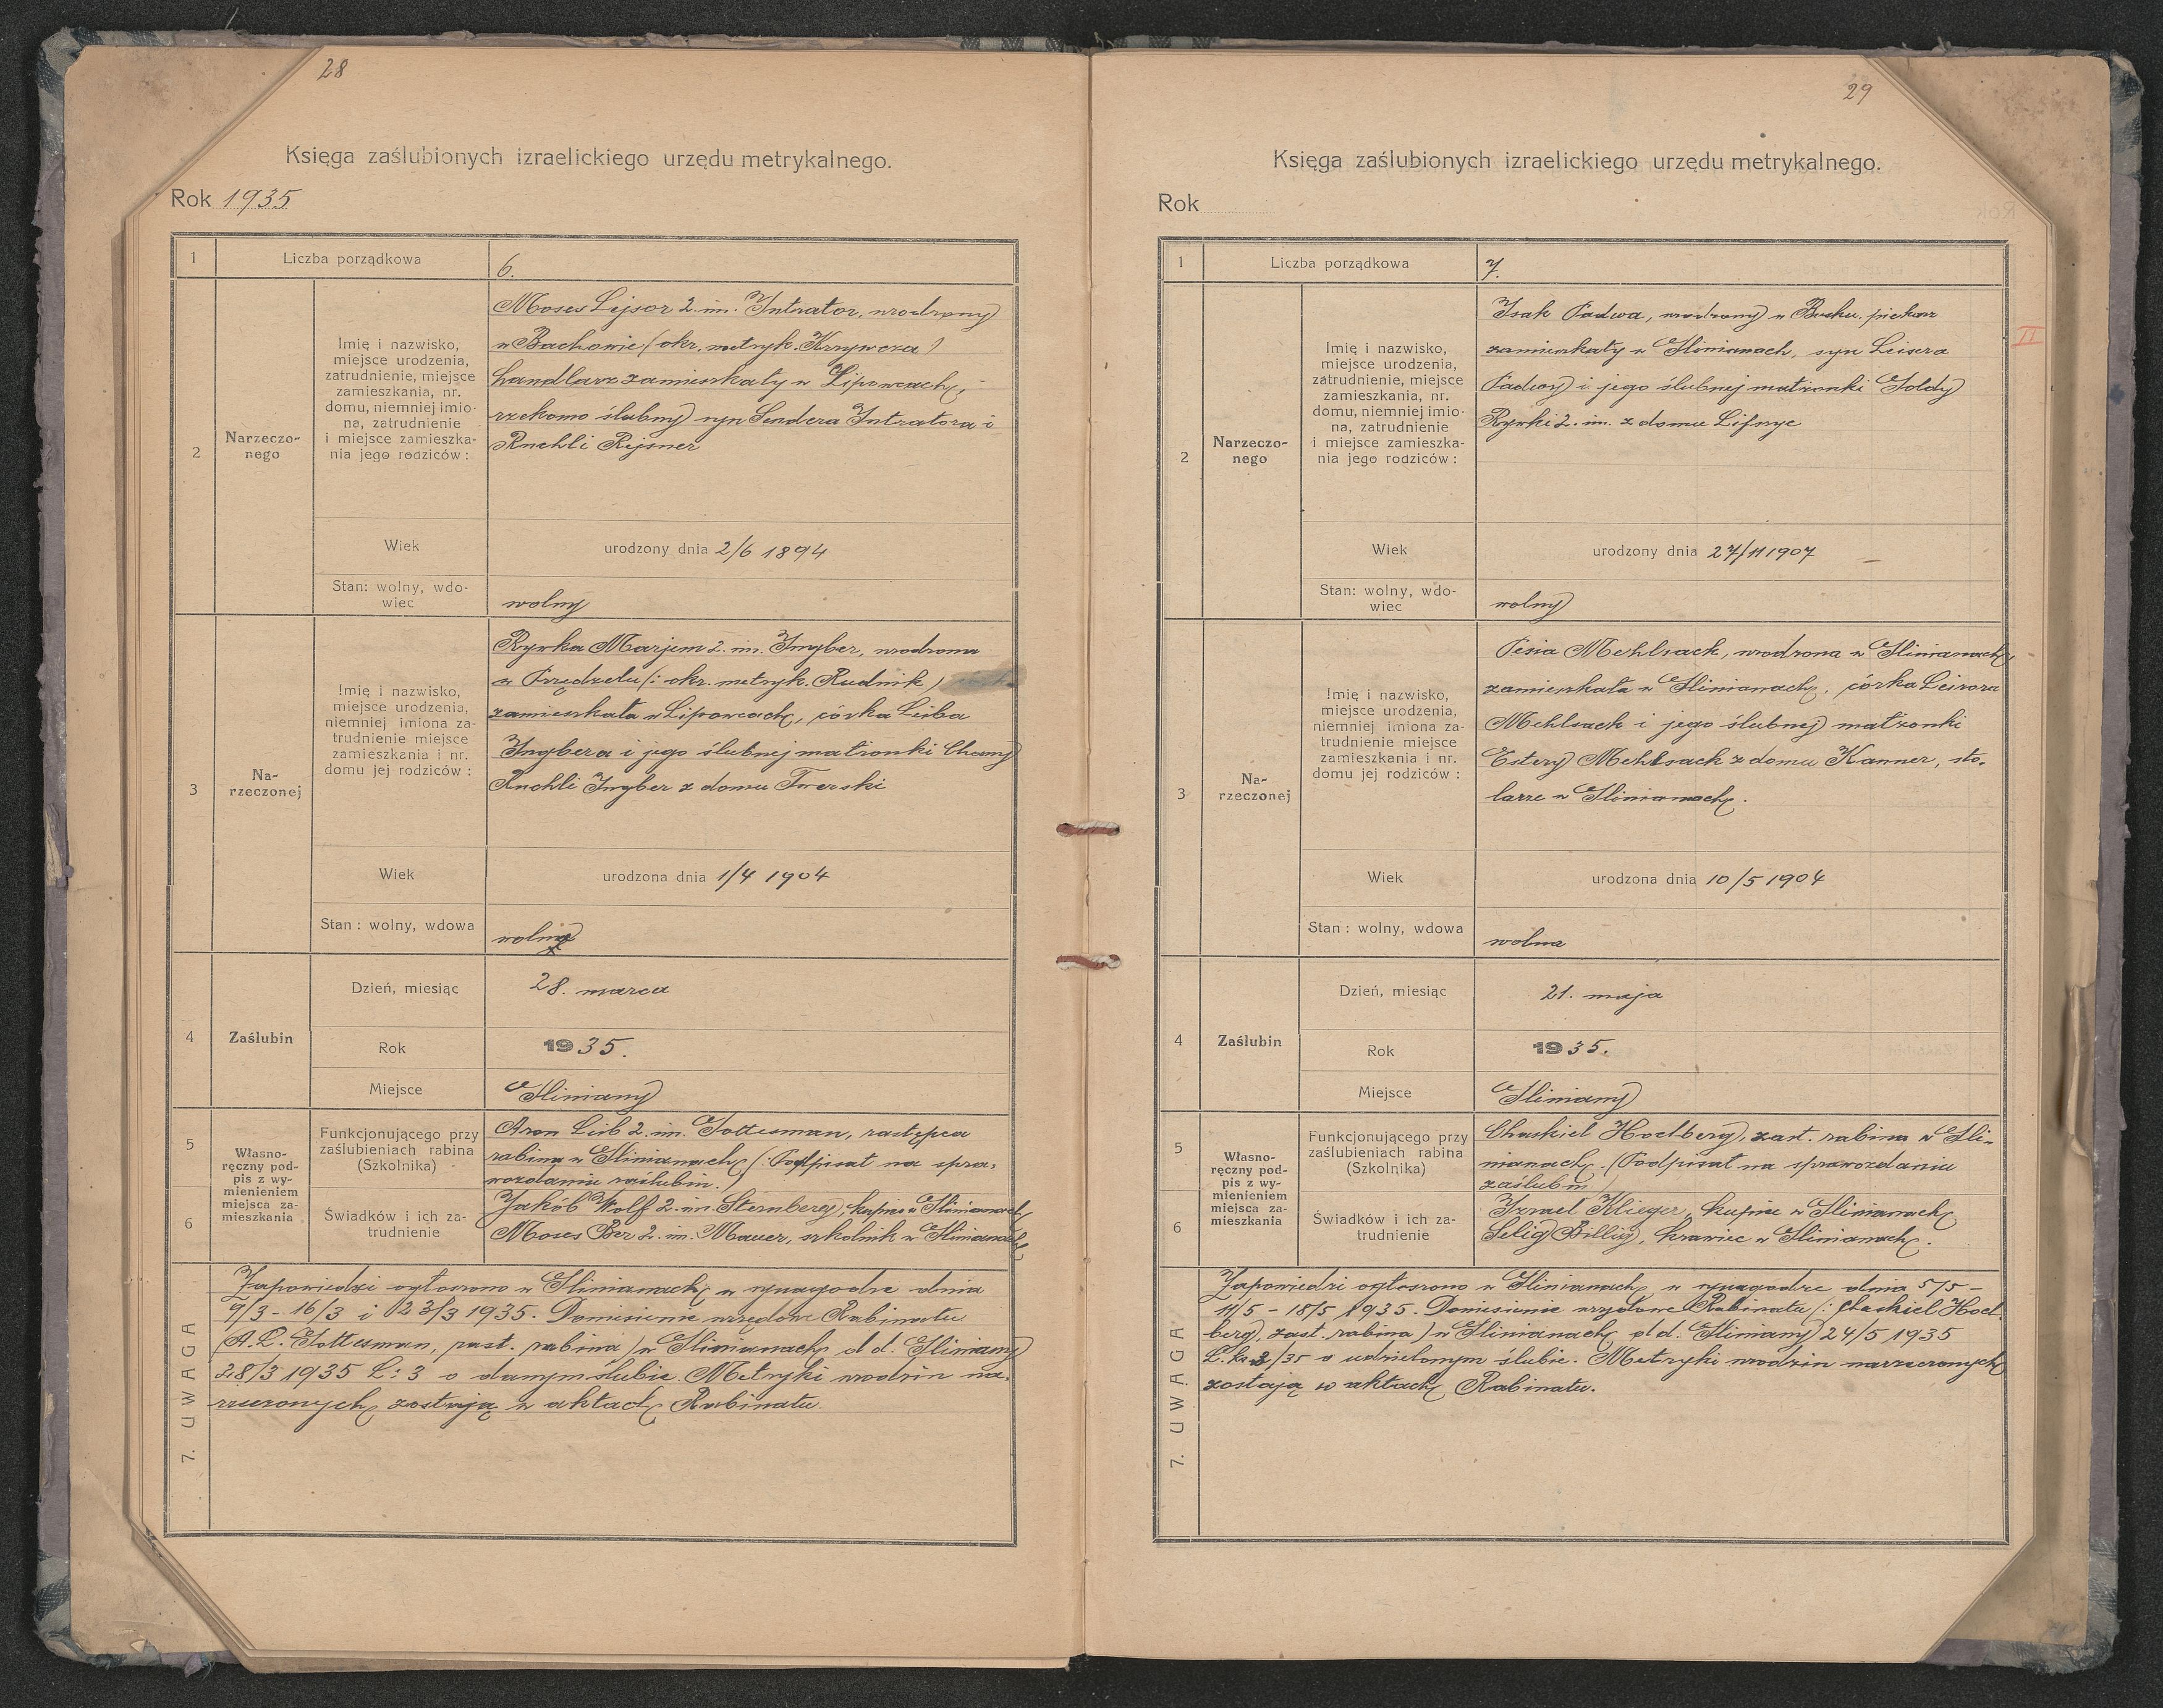 28
Księga zaślubionych izraelickiego urzędu metrykalnego.
Rok 1935
1
Liczba porządkowa
6.
2
Narzeczo-
nego
Imię i nazwisko,
miejsce urodzenia,
zatrudnienie, miejsce
zamieszkania, nr.
domu, niemniej imio-
na, zatrudnienie
i miejsce zamieszka-
nia jego rodziców :
Moses Lejsor 2. im. Intrator, urodzony
w Bachowie (okr. metryk. Krzywcza)
handlarz zamieszkały w Lipowcach,
rzekomo ślubny syn Sendera Intratora i
Ruchli Rejsner
Wiek
urodzony dnia 2/6 1894
Stan: wolny, wdo-
wiec
wolny
3
Na-
rzeczonej
Imię i nazwisko,
miejsce urodzenia,
niemniej imiona za-
trudnienie miejsce
zamieszkania i nr.
domu jej rodziców :
Rywka Marjem 2. im. Ingber, urodzona
w Przędzelu (: okr. metryk. Rudnik)
zamieszkała w Lipowcach, córka Leiba
Ingbera i jego ślubnej małżonki Chany
Ruchli Ingber z domu Twerski
Wiek
urodzona dnia 1/4 1904
Stan : wolny, wdowa
wolna
4
Zaślubin
Dzień, miesiąc
28. marca
Rok
1935.
Miejsce
Gliniany
5
6
Własno-
ręczny pod-
pis z wy-
mienieniem
miejsca za-
mieszkania
Funkcjonującego przy
zaślubieniach rabina
(Szkolnika)
Aron Leib 2. im. Gottesman, zastępca
rabina w Glinianach (: Podpisał na spra-
wozdaniu zaślubin.)
Świadków i ich za-
trudnienie
Jakób Wolf 2. im. Sternberg, kupiec w Glinianach
Moses Ber 2. im. Mauer, szkolnik w Glinianach
7. UWAGA
Zapowiedzi ogłoszono w Glinianach w synagodze dnia
9/3 - 16/3 i 23/3 1935. Doniesienie urzędowe Rabinatu
(A. L. Gottesman, zast. rabina) w Glinianach d d. Gliniany
28/3 1935 L: 3 o danym ślubie. Metryki urodzin na-
rzeczonych zostają w aktach Rabinatu.
29
Księga zaślubionych izraelickiego urzędu metrykalnego.
Rok
1
Liczba porządkowa
7.
2
Narzeczo-
nego
Imię i nazwisko,
miejsce urodzenia,
zatrudnienie, miejsce
zamieszkania, nr.
domu, niemniej imio-
na, zatrudnienie
i miejsce zamieszka-
nia jego rodziców :
Isak Padwa, urodzony w Busku, piekarz
zamieszkały w Glinianach, syn Leisera
Padwy i jego ślubnej małżonki Goldy
Rywki 2. im. z domu Lifszyc
II
Wiek
urodzony dnia 27/11 1907
Stan: wolny, wdo-
wiec
wolny
3
Na-
rzeczonej
Imię i nazwisko,
miejsce urodzenia,
niemniej imiona za-
trudnienie miejsce
zamieszkania i nr.
domu jej rodziców :
Pesia Mehlsack, urodzona w Glinianach,
zamieszkała w Glinianach, córka Leisora
Mehlsack i jego ślubnej małżonki
Estery Mehlsack z domu Kanner, sto-
larze w Glinianach.
Wiek
urodzona dnia 10/5 1904
Stan : wolny, wdowa
wolna
4
Zaślubin
Dzień, miesiąc
21. maja
Rok
1935.
Miejsce
Gliniany
5
6
Własno-
ręczny pod-
pis z wy-
mienieniem
miejsca za-
mieszkania
Funkcjonującego przy
zaślubieniach rabina
(Szkolnika)
Chaskiel Hochberg, zast. rabina w Gli-
nianach. (Podpisał na sprawozdaniu
zaślubin)
Świadków i ich za-
trudnienie
Izrael Klieger, kupiec w Glinianach
Selig Billig, krawiec w Glinianach.
7. UWAGA
Zapowiedzi ogłoszono w Glinianach w synagodze dnia 5/5 -
11/5 - 18/5 1935. Doniesienie urzędowe Rabinatu (: Chaskiel Hoch-
berg, zast. rabina) w Glinianach d d. Gliniany 24/5 1935
/35 o udzielonym ślubie. Metryki urodzin narzeczonych
zostają w aktach Rabinatu.